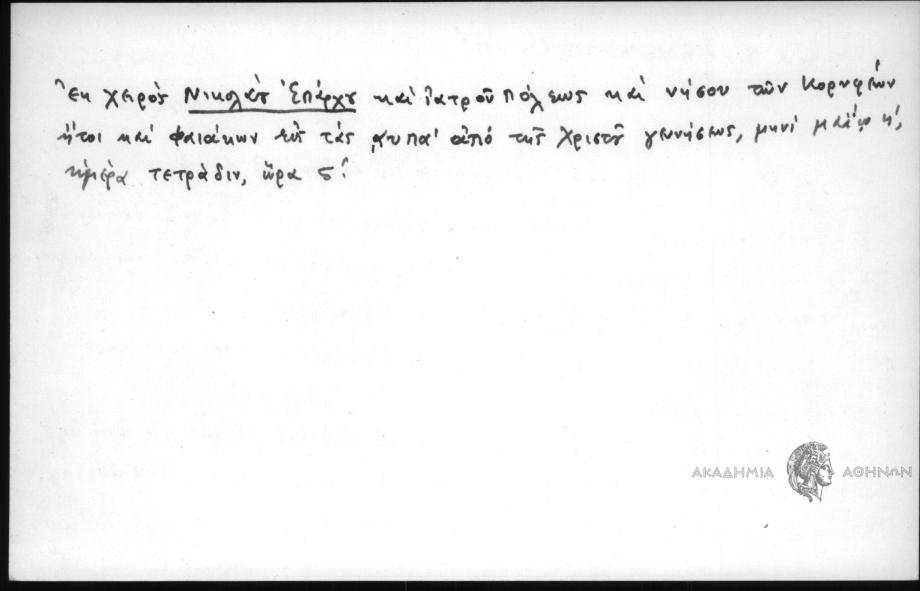 Ἐκ χειρὸς Νικολάου Ἐπάρχου καὶ ἰατροῦ πόλεως καὶ νήσου τῶν Κορυφῶν
ἤτοι καὶ φαιάκων εἰς τὰς ͵αυπα' ἀπὸ τῆς Χριστοῦ γεννήσεως, μηνὶ μαΐῳ
ἡμέρᾳ τετράδιν, ὥρα ς΄.
ΑΚΑΔΗΜΙΑ ΑΘΗΝΩΝ